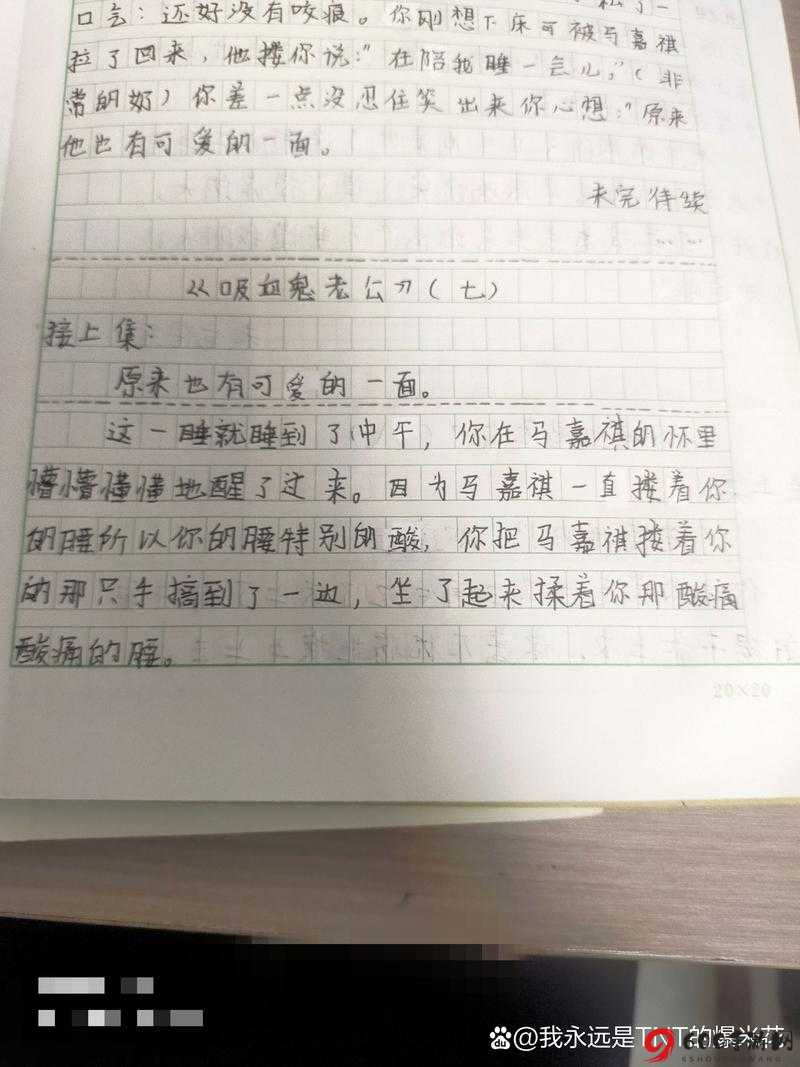 松了一
口气：还好没有咬痕。你刚想下床可被马嘉祺
拉了回来，他搂你说："在陪我睡一会儿，"（非
常的奶）你差一点没忍住笑出来你心想："原来
他也有可爱的一面。
未完待续
……
《吸血鬼老公》（七）
接上集：
原来也有可爱的一面。
这一睡就睡到了中午，你在马嘉祺的怀里
懵懵懂懂地醒了过来。因为马嘉祺一直搂着你
的腰所以你的腰特别的酸，你把马嘉祺搂着你
的那只手搞到了一边，坐了起来揉着你那酸痛
酸痛的腰。
20×20
@我永远是TNT的爆米花